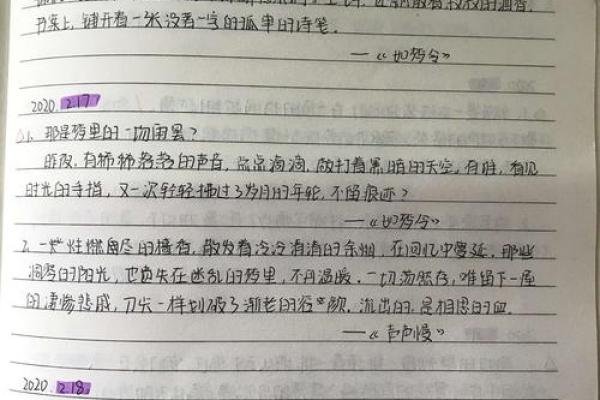 书案上，铺开着一张没着一字的孤单的诗笺。
——《如梦令》
2020. 2.17
△1. 那是梦里的一场雨罢？
昨夜，有稀稀落落的声音，点点滴滴，敲打着黑暗的天空，有谁，看见
时光的手指，又一次轻轻拂过了岁月的年轮，不留痕迹？
——《如梦令》
2. 一炷性燃自尽的檀香，散发着冷冷清清的余烟，在回忆中蔓延，那些
凋零的阳光，也遗失在迷乱的梦里，不再温暖，一切荡然存，唯留下一屋
的凄惨悲戚，刀尖一样划破了渐老的容颜，流出的，是相思的血。
——《声声慢》
2020. 2.18